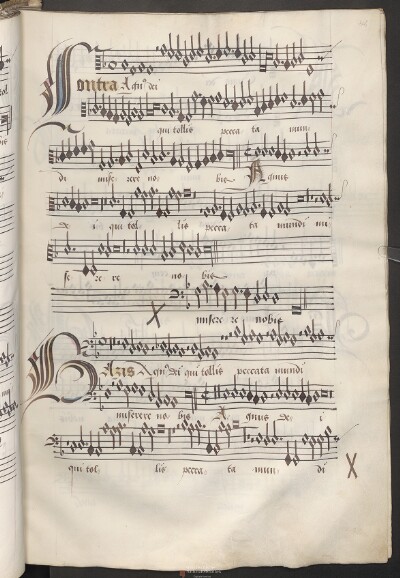 Contra Agnus dei
qui tollis pecca ta mun
di mise rere no bis Agnus
de i qui tol lis pecca ta mundi mi
se re re no bis
misere re nobis
Basus Agnus dei qui tollis peccata mundi
miserere no bis A gnus de i
qui tol lis pecca ta mun di